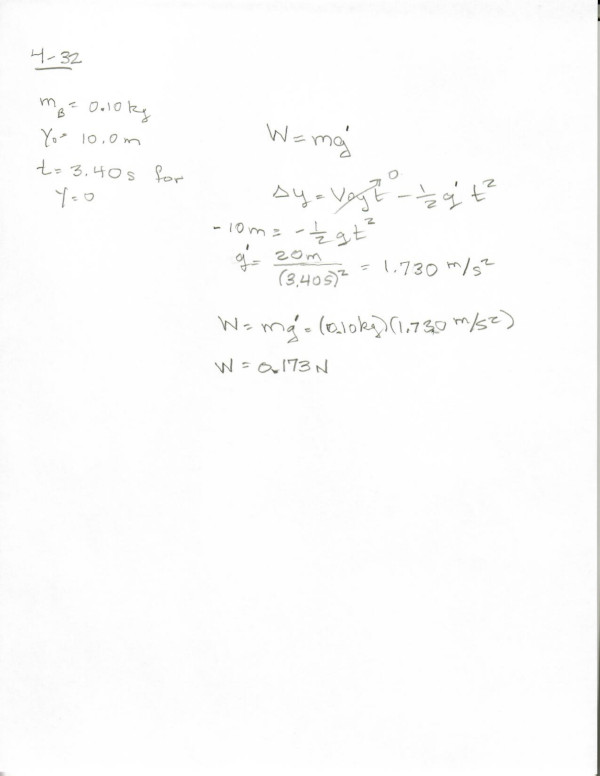 4-32
m_B = 0.10 kg
y₀ = 10.0 m
t = 3.40 s for
y = 0
W = mg'
Δy = V₀yt⁰ - ½ g' t²
-10m = -½ g t²
g' = 20m / (3.40s)² = 1.730 m/s²
W = mg' = (0.10kg)(1.730 m/s²)
W = 0.173 N